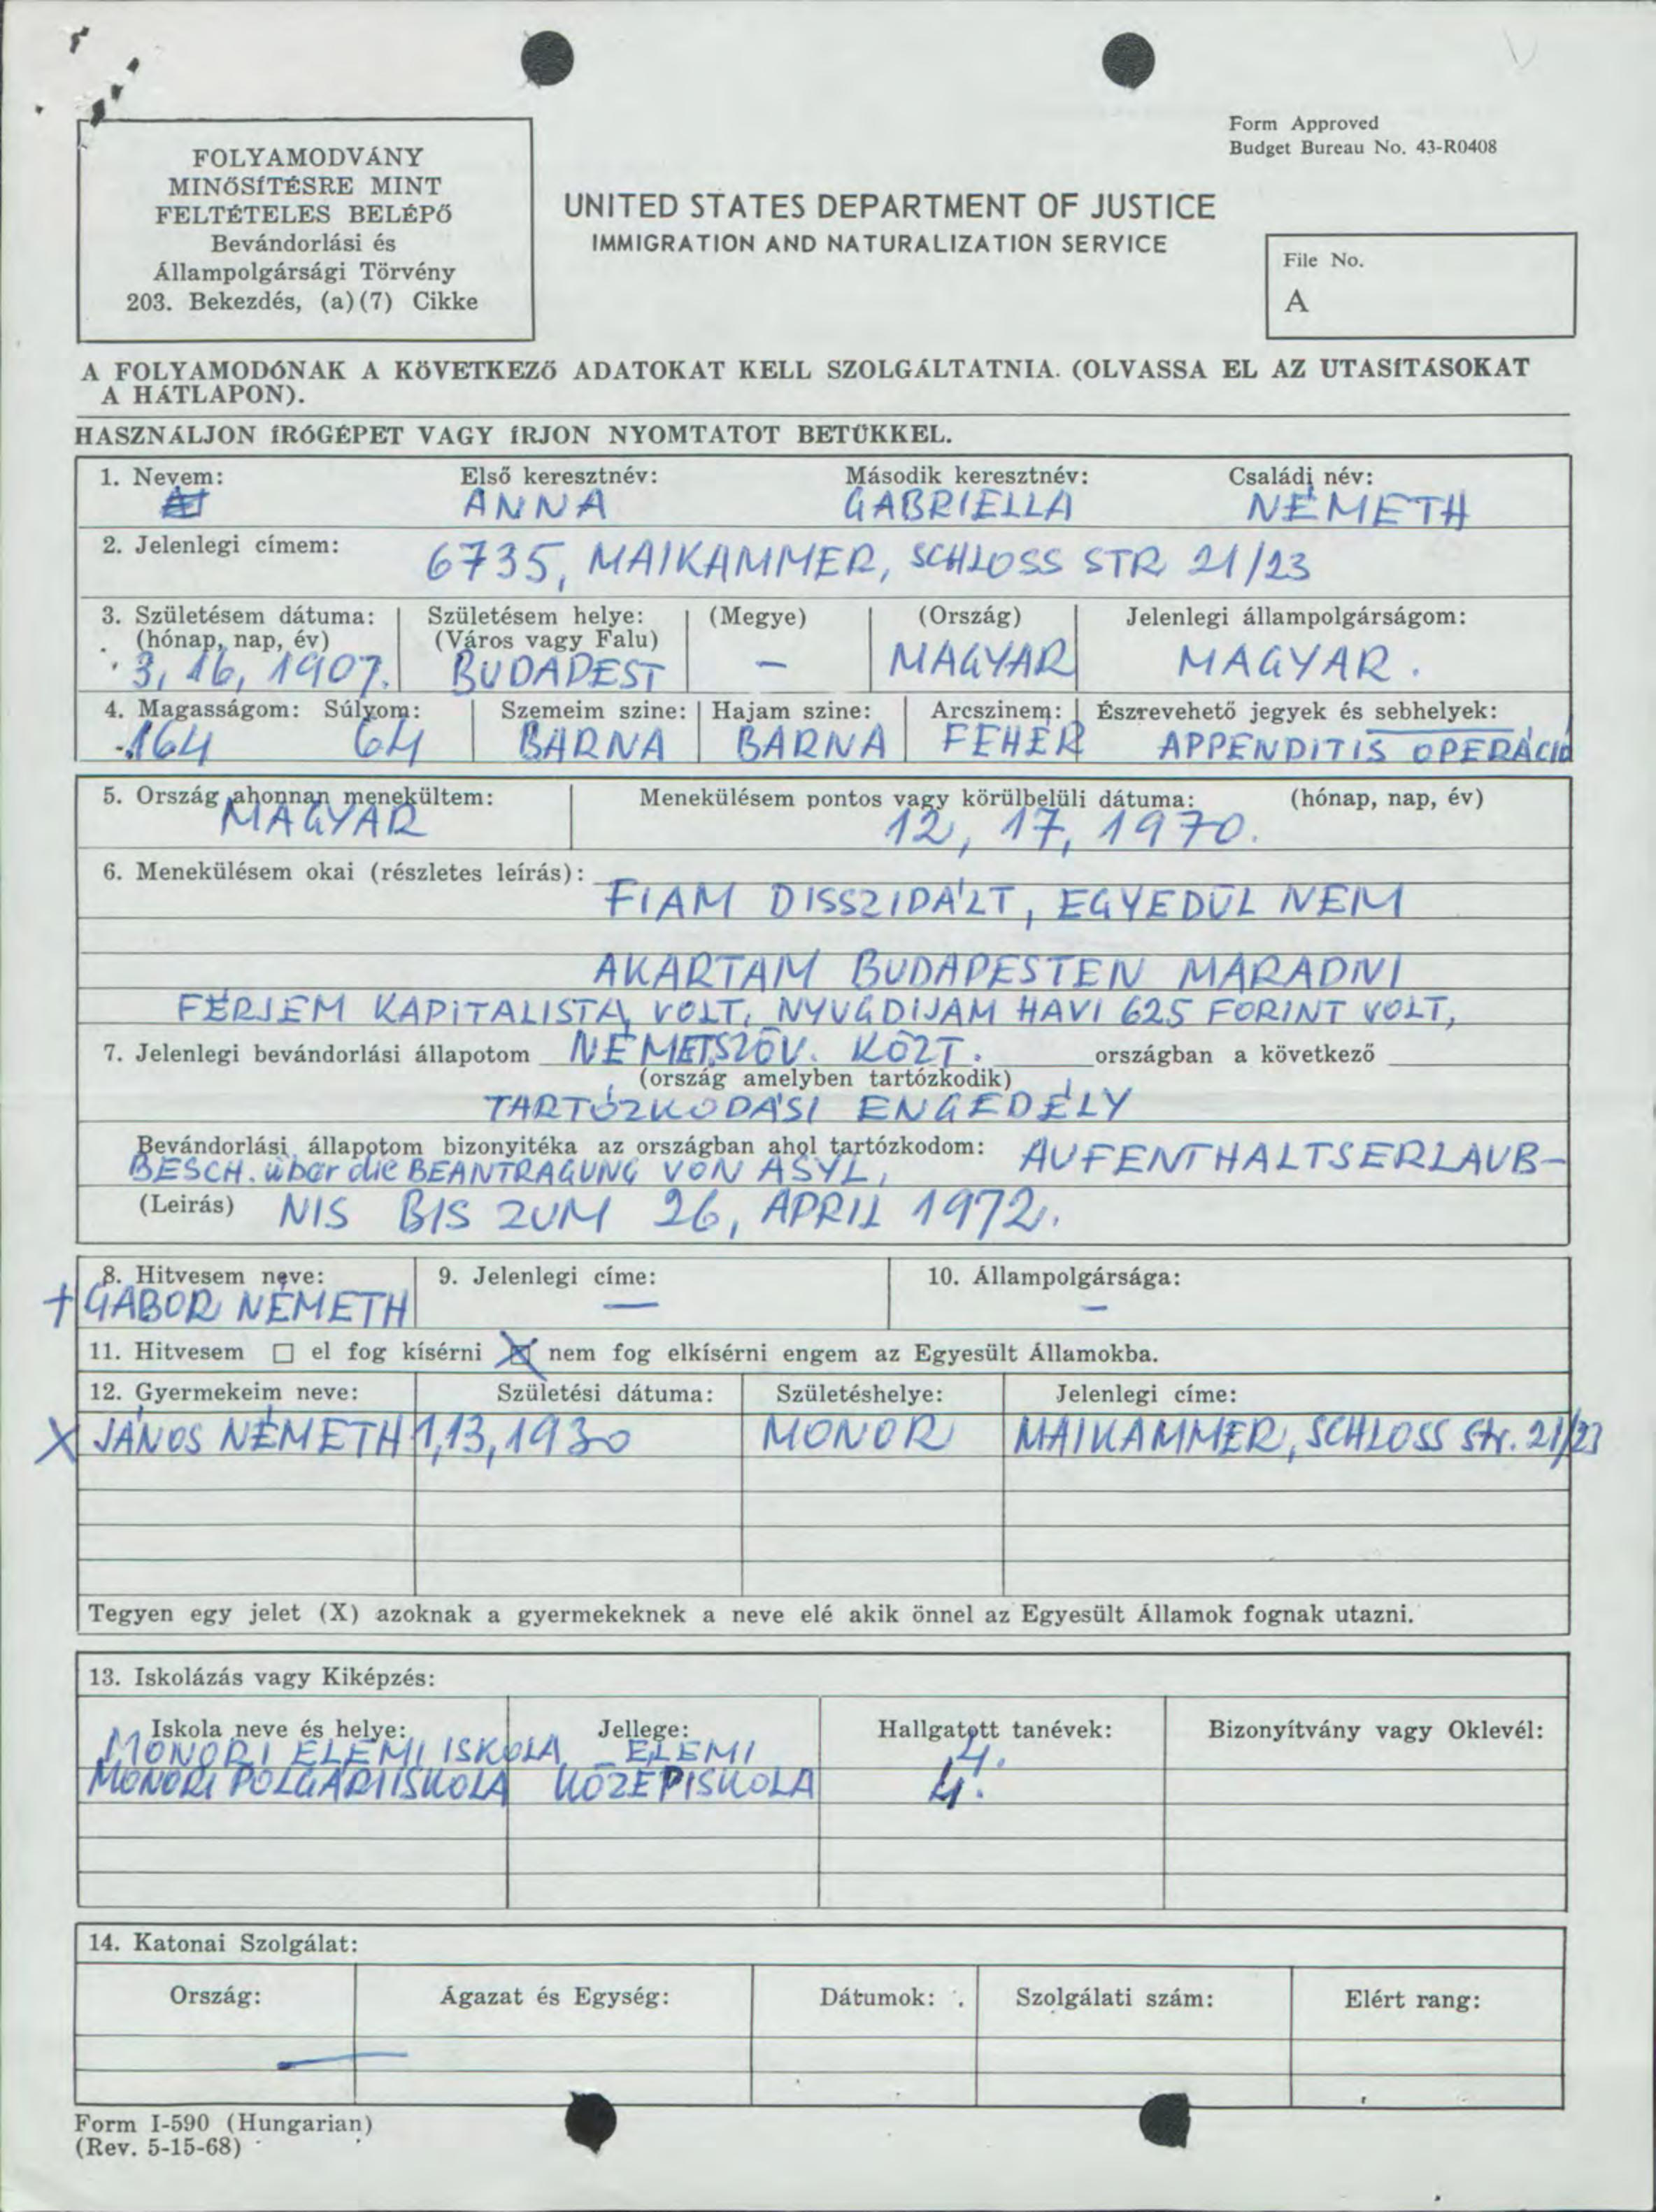 Form Approved
Budget Bureau No. 43-R0408
FOLYAMODVÁNY
MINŐSÍTÉSRE MINT
FELTÉTELES BELÉPŐ
Bevándorlási és
Állampolgársági Törvény
203. Bekezdés, (a)(7) Cikke
UNITED STATES DEPARTMENT OF JUSTICE
IMMIGRATION AND NATURALIZATION SERVICE
File No.
A
A FOLYAMODÓNAK A KÖVETKEZŐ ADATOKAT KELL SZOLGÁLTATNIA. (OLVASSA EL AZ UTASÍTÁSOKAT
A HÁTLAPON).
HASZNÁLJON ÍRÓGÉPET VAGY ÍRJON NYOMTATOT BETŰKKEL.
1. Nevem: Első keresztnév: Második keresztnév: Családi név:
ANNA GABRIELLA NÉMETH
2. Jelenlegi címem: 6735, MAIKAMMER, SCHLOSS STR 21/23
3. Születésem dátuma: Születésem helye: (Megye) (Ország) Jelenlegi állampolgárságom:
(hónap, nap, év) (Város vagy Falu)
3, 16, 1907. BUDAPEST — MAGYAR MAGYAR.
4. Magasságom: Súlyom: Szemeim szine: Hajam szine: Arcszinem: Észrevehető jegyek és sebhelyek:
164 64 BARNA BARNA FEHÉR APPENDITIS OPERÁCIÓ
5. Ország ahonnan menekültem: Menekülésem pontos vagy körülbelüli dátuma: (hónap, nap, év)
MAGYAR 12, 17, 1970.
6. Menekülésem okai (részletes leírás):
FIAM DISSZIDÁLT, EGYEDÜL NEM
AKARTAM BUDAPESTEN MARADNI
FÉRJEM KAPITALISTA VOLT, NYUGDIJAM HAVI 625 FORINT VOLT,
7. Jelenlegi bevándorlási állapotom NÉMETSZÖV. KÖZT. országban a következő
(ország amelyben tartózkodik)
TARTÓZKODÁSI ENGEDÉLY
Bevándorlási állapotom bizonyitéka az országban ahol tartózkodom: AUFENTHALTSERLAUB-
BESCH. über die BEANTRAGUNG VON ASYL,
(Leirás) NIS BIS ZUM 26, APRIL 1972.
8. Hitvesem neve: 9. Jelenlegi címe: 10. Állampolgársága:
+ GÁBOR NÉMETH — —
11. Hitvesem ☐ el fog kísérni ☒ nem fog elkísérni engem az Egyesült Államokba.
12. Gyermekeim neve: Születési dátuma: Születéshelye: Jelenlegi címe:
X JÁNOS NÉMETH 1,13,1930 MONOR MAIKAMMER, SCHLOSS Str. 21/23
Tegyen egy jelet (X) azoknak a gyermekeknek a neve elé akik önnel az Egyesült Államok fognak utazni.
13. Iskolázás vagy Kiképzés:
Iskola neve és helye: Jellege: Hallgatott tanévek: Bizonyítvány vagy Oklevél:
MONORI ELEMI ISKOLA ELEMI 4.
MONORI POLGÁRI ISKOLA KÖZÉPISKOLA 4.
14. Katonai Szolgálat:
Ország: Ágazat és Egység: Dátumok: Szolgálati szám: Elért rang:
—
Form I-590 (Hungarian)
(Rev. 5-15-68)